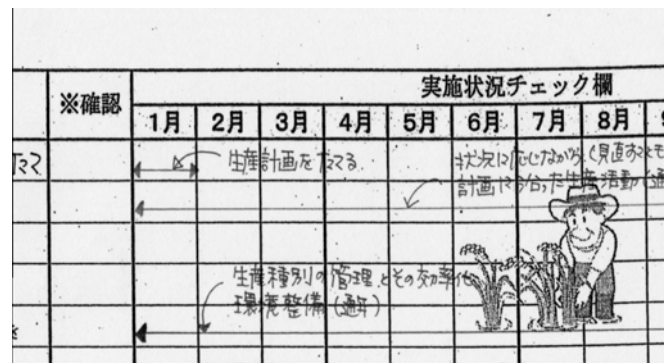 実施状況チェック欄
※確認
1月 2月 3月 4月 5月 6月 7月 8月
生産計画をたてる
状況に応じながら(見直おしも
計画にそった生産活動(通
生産種別の管理とその効率化
環境整備(通年)